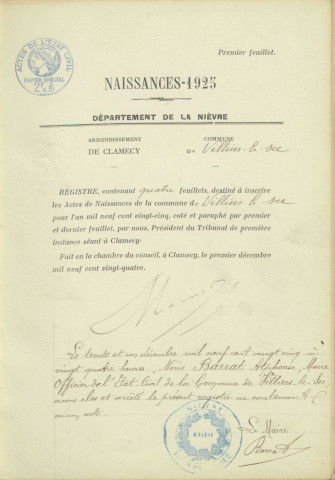 Premier feuillet.
ACTES DE L'ÉTAT CIVIL
PAPIER SPÉCIAL
NAISSANCES-1925
DÉPARTEMENT DE LA NIÈVRE
ARRONDISSEMENT
DE CLAMECY
COMMUNE
De Villiers-le-sec
REGISTRE, contenant quatre feuillets, destiné à inscrire
les Actes de Naissances de la commune de Villiers le sec
pour l'an mil neuf cent vingt-cinq, coté et paraphé par premier
et dernier feuillet, par nous, Président du Tribunal de première
instance séant à Clamecy.
Fait en la chambre du conseil, à Clamecy, le premier décembre
mil neuf cent vingt-quatre.
Le trente et un décembre mil neuf cent vingt cinq à
vingt quatre heures, Nous Barrat Alphonse, Maire
Officier de l'Etat-Civil de la Commune de Villiers-le-Sec,
avons clos et arrêté le présent registre ne contenant
aucun acte.
NIEVRE
MAIRIE
Le Maire
Barrat A